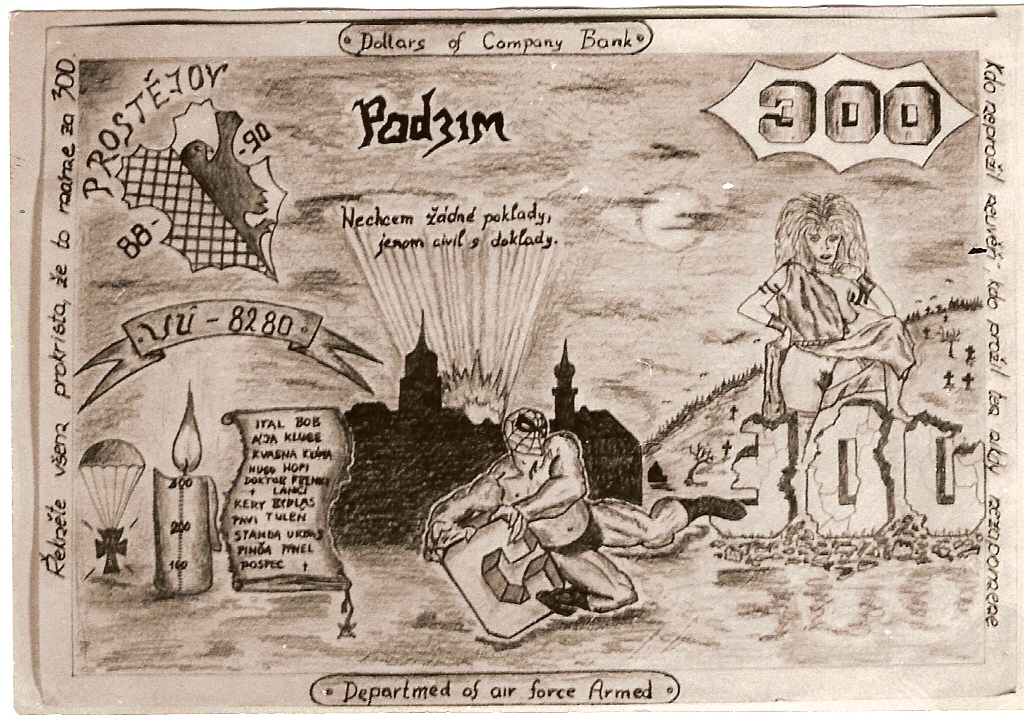 Dollars of Company Bank
300
PROSTĚJOV
88-
-90
Podzim
Nechcem žádné poklady,
jenom civil s doklady.
VÚ-8280
300
200
100
ITAL BOB
KVASNA KLIMA
HUGO HOPI
DOKTOR FRENKI
LANCI
KERY BIDLAS
PAVI TULEN
STANDA
PINĎA PAVEL
POSPEC
300
Departmed of air force Armed
Řekněte všem že to máme za 300
Kdo neprožil nevěří, kdo prožil nezapomene